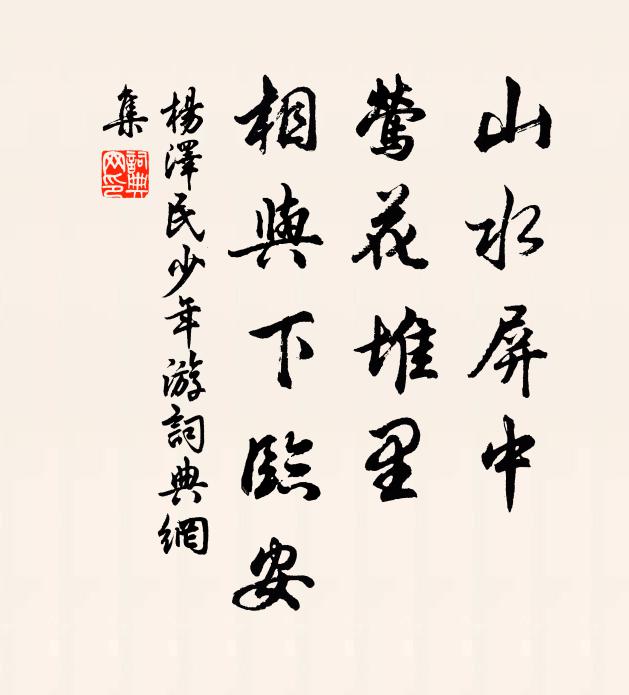 山水屏中
莺花堆里
相與下臨安
楊澤民少年游詞典網
集
詞典
网印